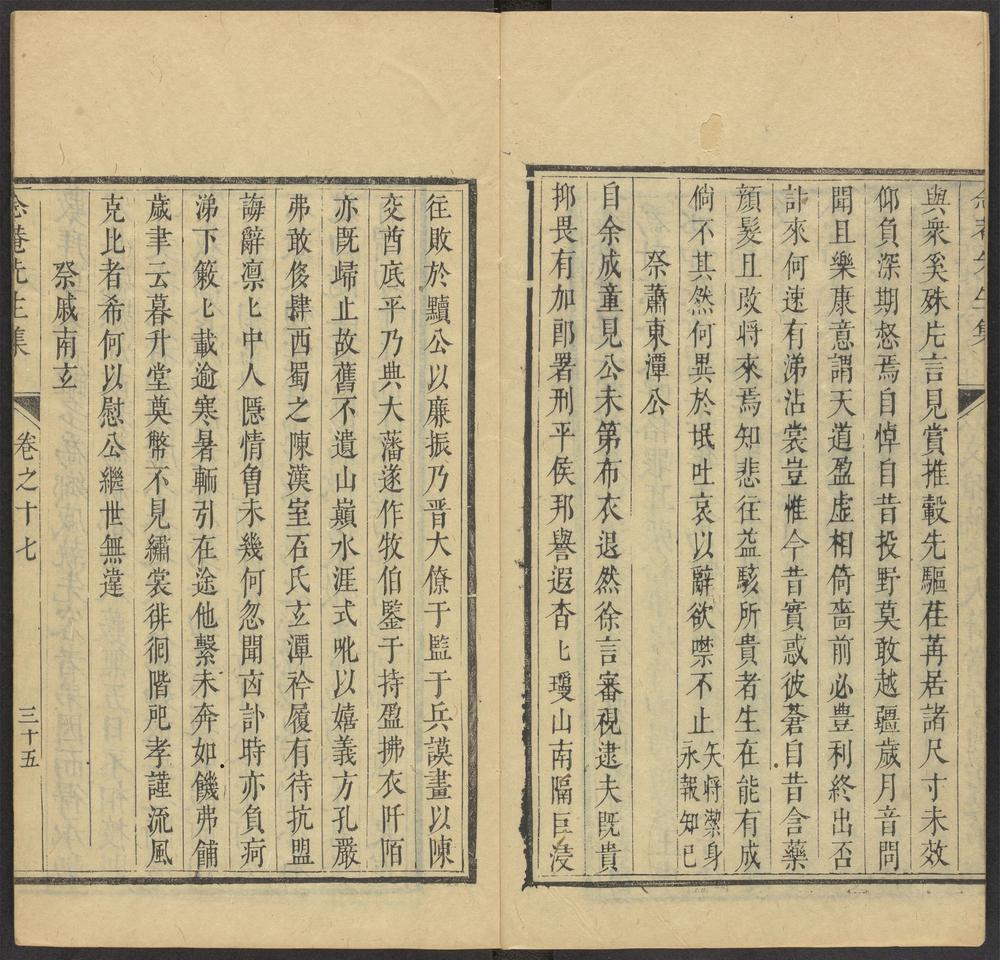 與衆奚殊片言見賞推轂先驅荏苒居諸尺寸未效
仰負深期愁焉自悼自昔投野莫敢越疆歲月音問
聞且樂康意謂天道盈虛相倚嗇前必豊利終出否
訃來何速有涕沾裳豈惟今昔實惑彼蒼自昔含藥
顏髮且改將來焉知悲往益駭所貴者生在能有成
倘不其然何異於垊吐哀以辭欲噤不止矢將潔身
永報知己
祭蕭東潭公
自余成童見公未第布衣退然徐言審視逮夫旣貴
抑畏有加郎署刑平侯邦譽遐杳匕瓊山南隔巨浸
往敗於黷公以廉振乃晋大僚于監于兵謨畫以陳
交酋底平乃典大藩遂作牧伯鍳于持盈拂衣阡陌
亦旣歸止故舊不遺山巔水涯式吪以嬉義方孔嚴
弗敢侈肆西蜀之陳漢室石氏玄潭衿履有待抗盟
誨辭凛匕中人隱情曾未幾何忽聞㓙訃時亦負疴
涕下簌匕載逾寒暑輀引在途他繫未奔如饑弗餔
歲聿云暮升堂奠幣不見繡裳徘徊階戺孝謹流風
克比者希何以慰公繼世無違
祭戚南玄
念菴先生集
卷之十七
三十五